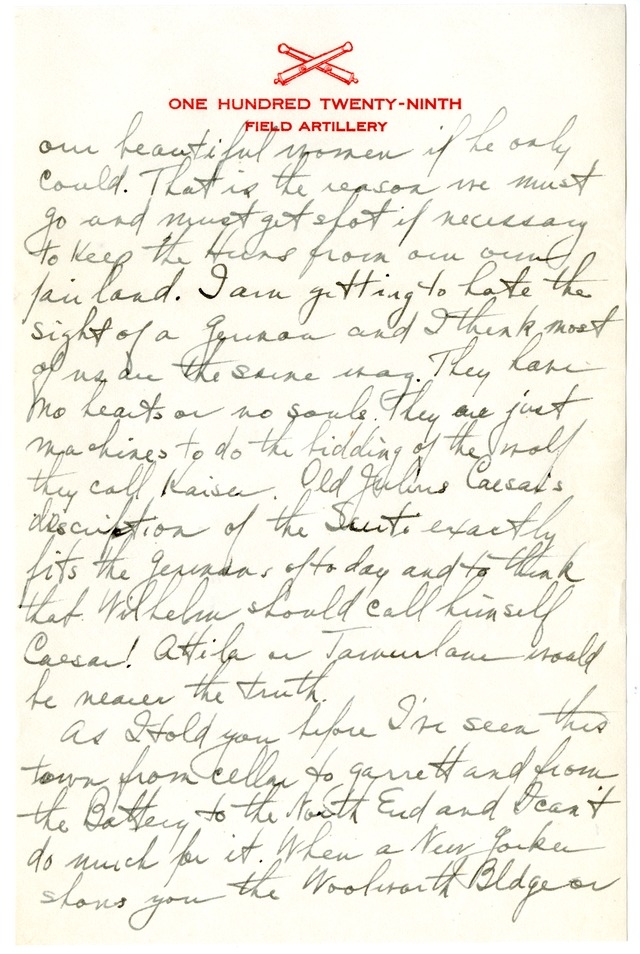 ONE HUNDRED TWENTY-NINTH
FIELD ARTILLERY
our beautiful women if he only
could. That is the reason we must
go and must get shot if necessary
to keep the Huns from our own
fair land. I am getting to hate the
sight of a German and I think most
of us are the same way. They have
no hearts or no souls. They are just
machines to do the bidding of the wolf
they call Kaiser. Old Julius Caesar's
description of the exactly
fits the Germans of today and to think
that Wilhelm should call himself
Caesar! Attila or Tamurlane would
be nearer the truth.
As I told you before I've seen this
town from cellar to garrett and from
the Battery to the North End and I can't
do much for it. When a New Yorker
shows you the Woolworth Bldg or